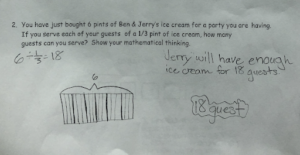 2. You have just bought 6 pints of Ben & Jerry's ice cream for a party you are having.
If you serve each of your guests of a 1/3 pint of ice cream, how many
guests can you serve? Show your mathematical thinking.
6 ÷ 1/3 = 18
Jerry will have enough
ice cream for 18 guests
6
18 guest